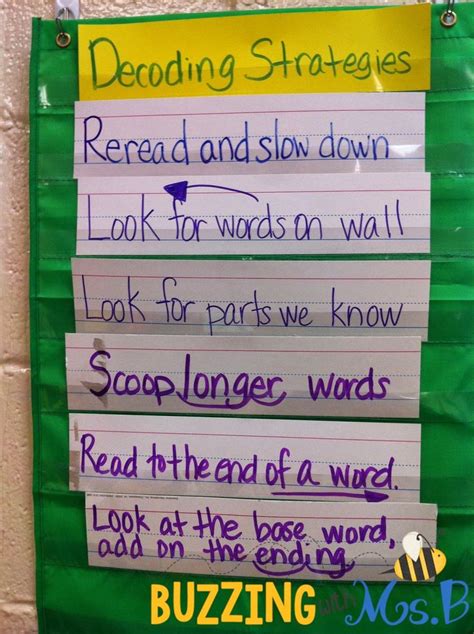 Decoding Strategies
Reread and slow down
Look for words on wall
Look for parts we know
Scoop longer words
Read to the end of a word.
Look at the base word,
add on the ending
BUZZING with Ms.B